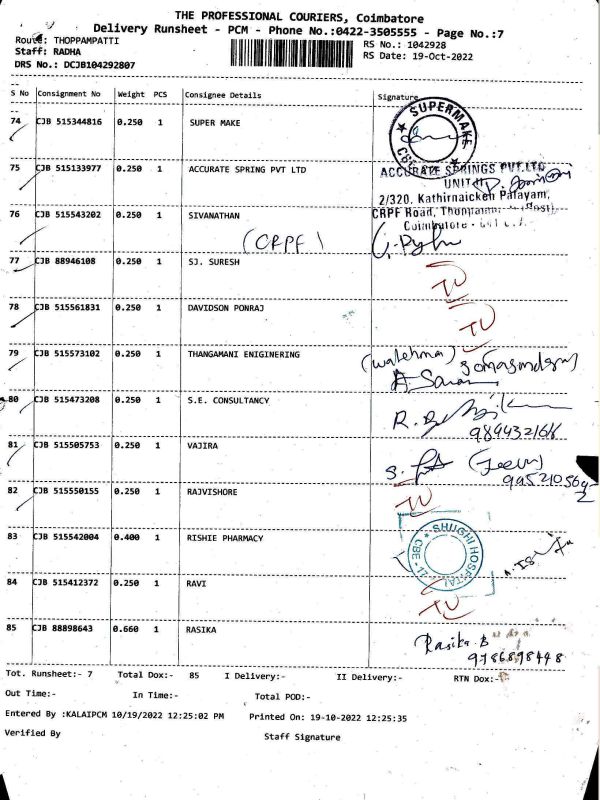 THE PROFESSIONAL COURIERS, Coimbatore
Delivery Runsheet - PCM - Phone No.:0422-3505555 - Page No.:7
Route: THOPPAMPATTI
Staff: RADHA
DRS No.: DCJB104292807
RS No.: 1042928
RS Date: 19-Oct-2022
S No Consignment No Weight PCS Consignee Details Signature
74 CJB 515344816 0.250 1 SUPER MAKE
SUPERMAKE
CBE
75 CJB 515133977 0.250 1 ACCURATE SPRING PVT LTD
ACCURATE SPRINGS PVT.LTD
UNIT-II
2/320, Kathirnaicken Palayam,
76 CJB 515543202 0.250 1 SIVANATHAN
CRPF Road,
Coimbatore -
(CRPF)
77 CJB 88946108 0.250 1 SJ. SURESH
TU
78 CJB 515561831 0.250 1 DAVIDSON PONRAJ
TU
79 CJB 515573102 0.250 1 THANGAMANI ENIGINERING
80 CJB 515473208 0.250 1 S.E. CONSULTANCY
81 CJB 515505753 0.250 1 VAJIRA
82 CJB 515550155 0.250 1 RAJVISHORE
TU
83 CJB 515542004 0.400 1 RISHIE PHARMACY
SHUGHI HOSPITAL
CBE - 11
84 CJB 515412372 0.250 1 RAVI
TU
85 CJB 88898643 0.660 1 RASIKA
Rasika.B
9786898448
Tot. Runsheet:- 7 Total Dox:- 85 I Delivery:- II Delivery:- RTN Dox:-
Out Time:- In Time:- Total POD:-
Entered By :KALAIPCM 10/19/2022 12:25:02 PM Printed On: 19-10-2022 12:25:35
Verified By Staff Signature